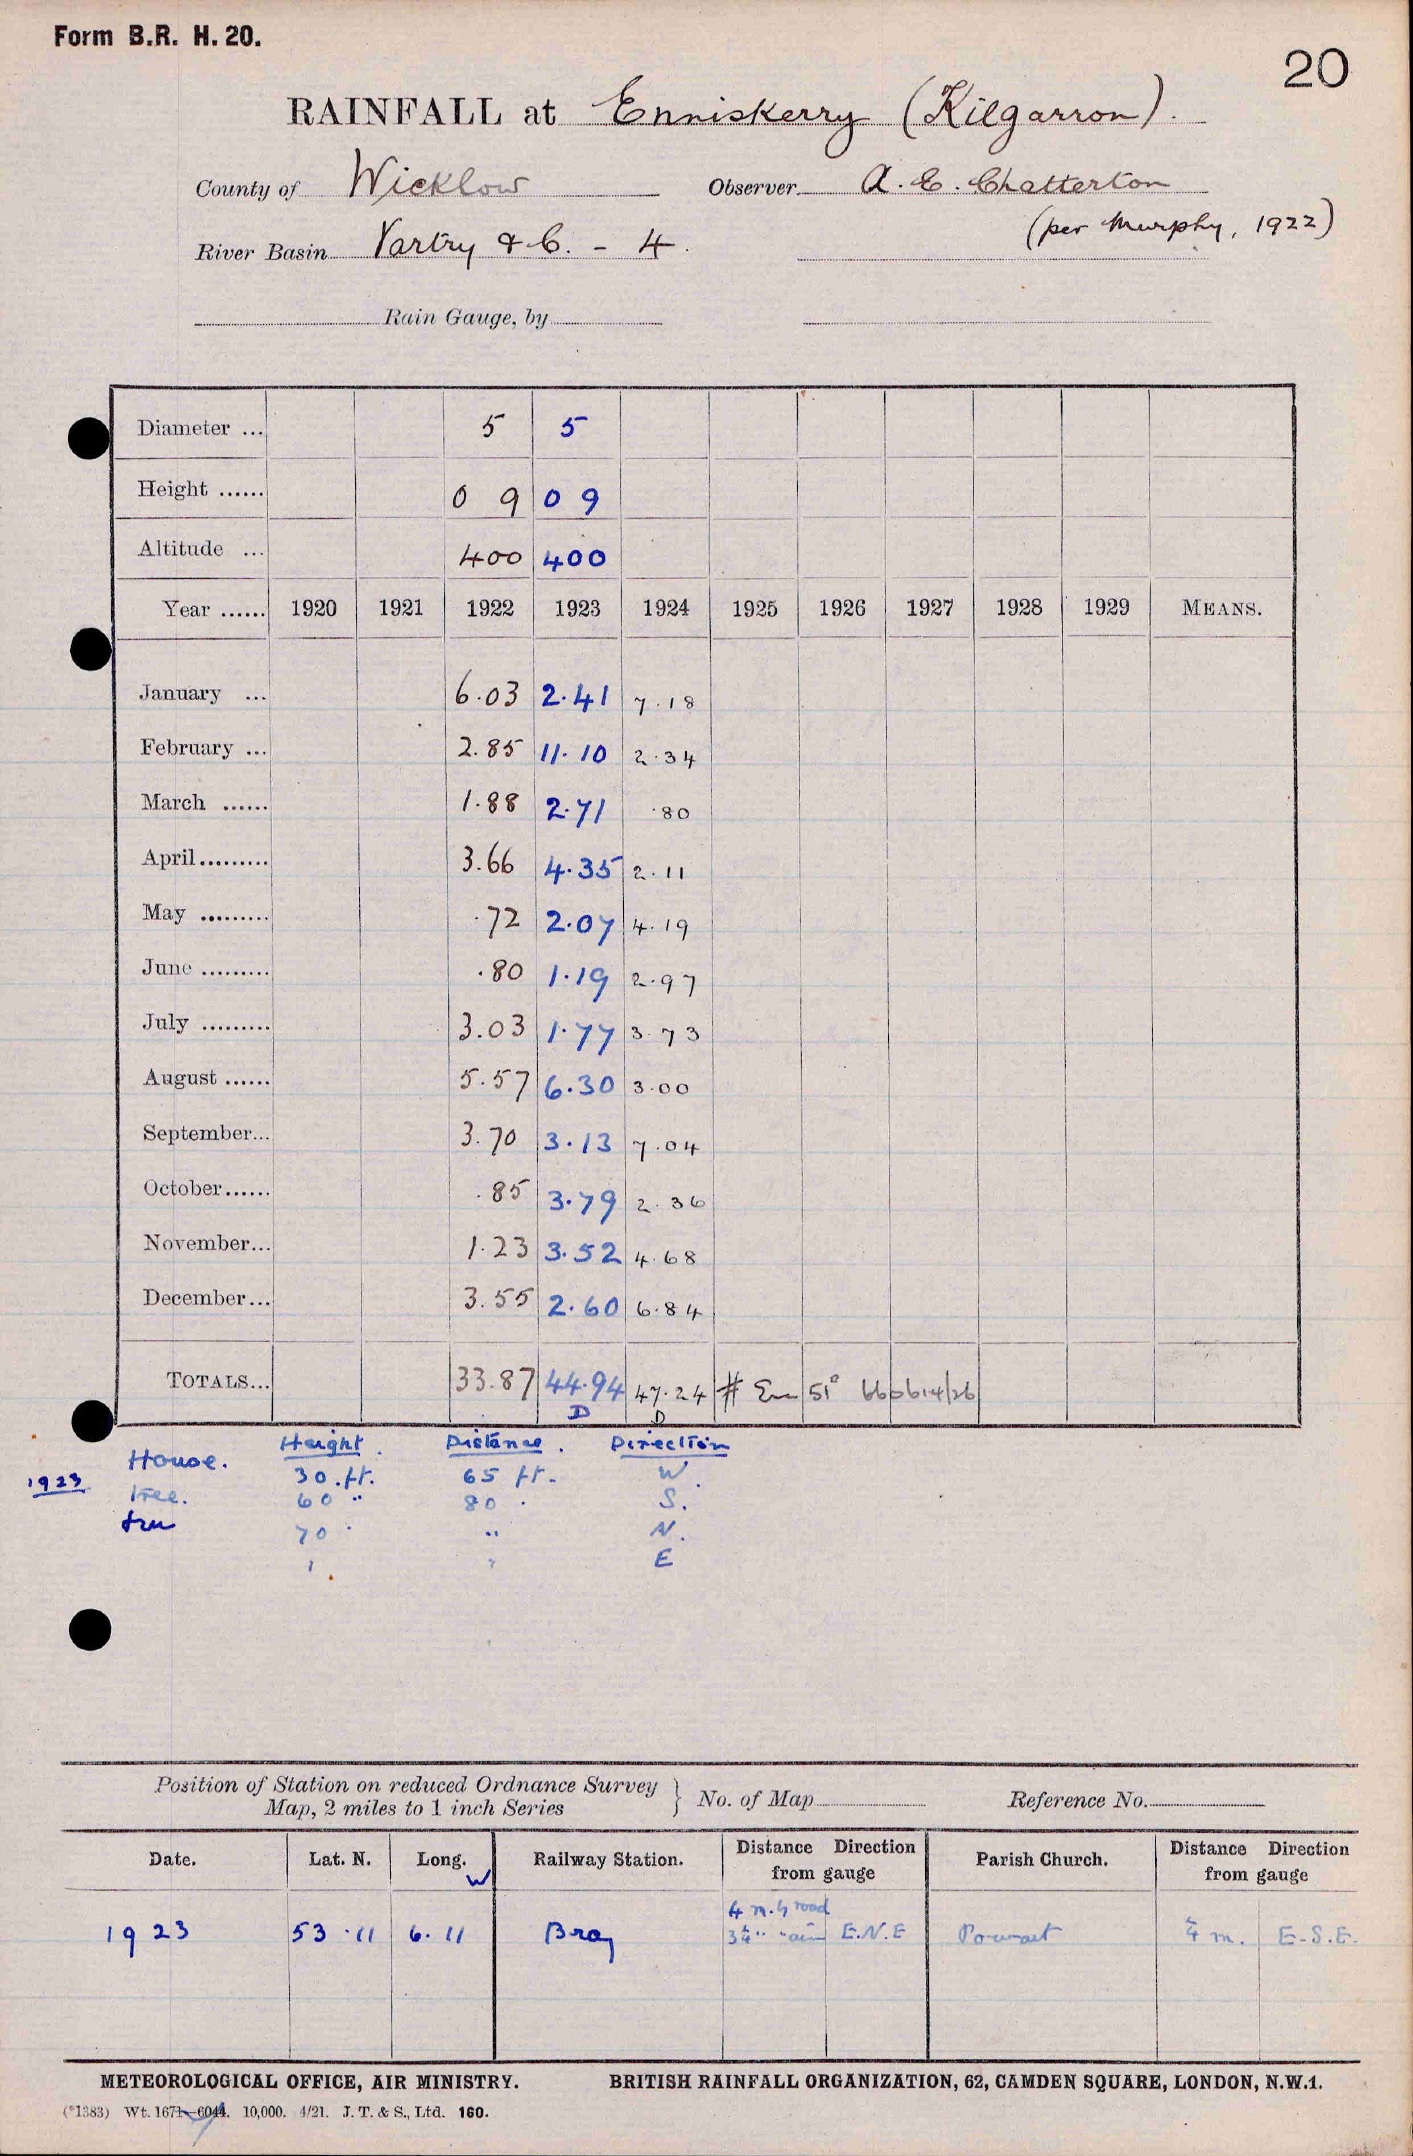 Form B.R. H. 20.
20
RAINFALL at Enniskerry (Kilgarron).
County of Wicklow Observer A. E. Chatterton
(per Murphy, 1922)
River Basin Vartry & C. - 4.
Rain Gauge, by
Diameter ... 5 5
Height ...... 0 9 0 9
Altitude ... 400 400
Year ...... 1920 1921 1922 1923 1924 1925 1926 1927 1928 1929 MEANS.
January ... 6.03 2.41 7.18
February ... 2.85 11.10 2.34
March ...... 1.88 2.71 .80
April ......... 3.66 4.35 2.11
May ......... .72 2.07 4.19
June ......... .80 1.19 2.97
July ......... 3.03 1.77 3.73
August ...... 5.57 6.30 3.00
September... 3.70 3.13 7.04
October...... .85 3.79 2.36
November... 1.23 3.52 4.68
December... 3.55 2.60 6.84
TOTALS... 33.87 44.94 47.24
D D
Height. Distance. Direction
House. 30 ft. 65 ft. W.
1923
Tree. 60 " 80 " S.
tree 70 " " N.
" " E
Position of Station on reduced Ordnance Survey
Map, 2 miles to 1 inch Series } No. of Map Reference No.
Date. Lat. N. Long. W Railway Station. Distance Direction from gauge Parish Church. Distance Direction from gauge
4 m. by road
1923 53.11 6.11 Bray E.N.E ¼ m. E.S.E.
METEOROLOGICAL OFFICE, AIR MINISTRY. BRITISH RAINFALL ORGANIZATION, 62, CAMDEN SQUARE, LONDON, N.W.1.
(*1383) Wt. 1671-6044. 10,000. 4/21. J. T. & S., Ltd. 160.